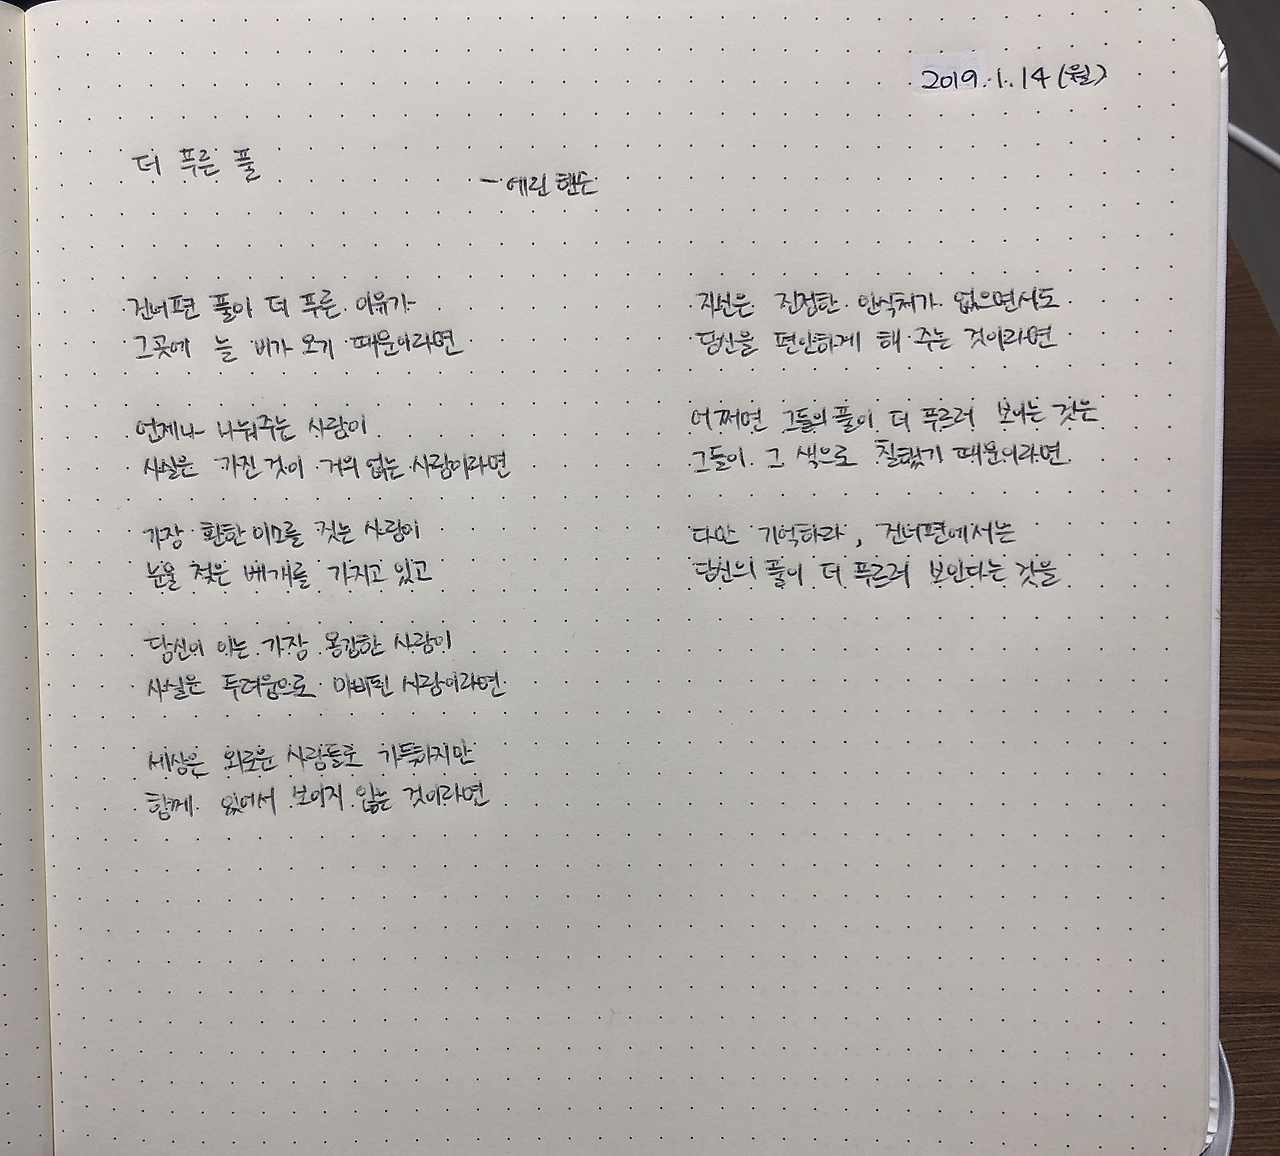 2019.1.14(월)
더 푸른 풀
- 에린 핸슨
건너편 풀이 더 푸른 이유가
그곳에 늘 비가 오기 때문이라면
언제나 나눠주는 사람이
사실은 가진 것이 거의 없는 사람이라면
가장 환한 미소를 짓는 사람이
눈물 젖은 베개를 가지고 있고
당신이 아는 가장 용감한 사람이
사실은 두려움으로 마비된 사람이라면
세상은 외로운 사람들로 가득하지만
함께 있어서 보이지 않는 것이라면
자신은 진정한 안식처가 없으면서도
당신을 편안하게 해 주는 것이라면
어쩌면 그들의 풀이 더 푸르러 보이는 것은
그들이 그 색으로 칠했기 때문이라면
다만 기억하라, 건너편에서는
당신의 풀이 더 푸르러 보인다는 것을